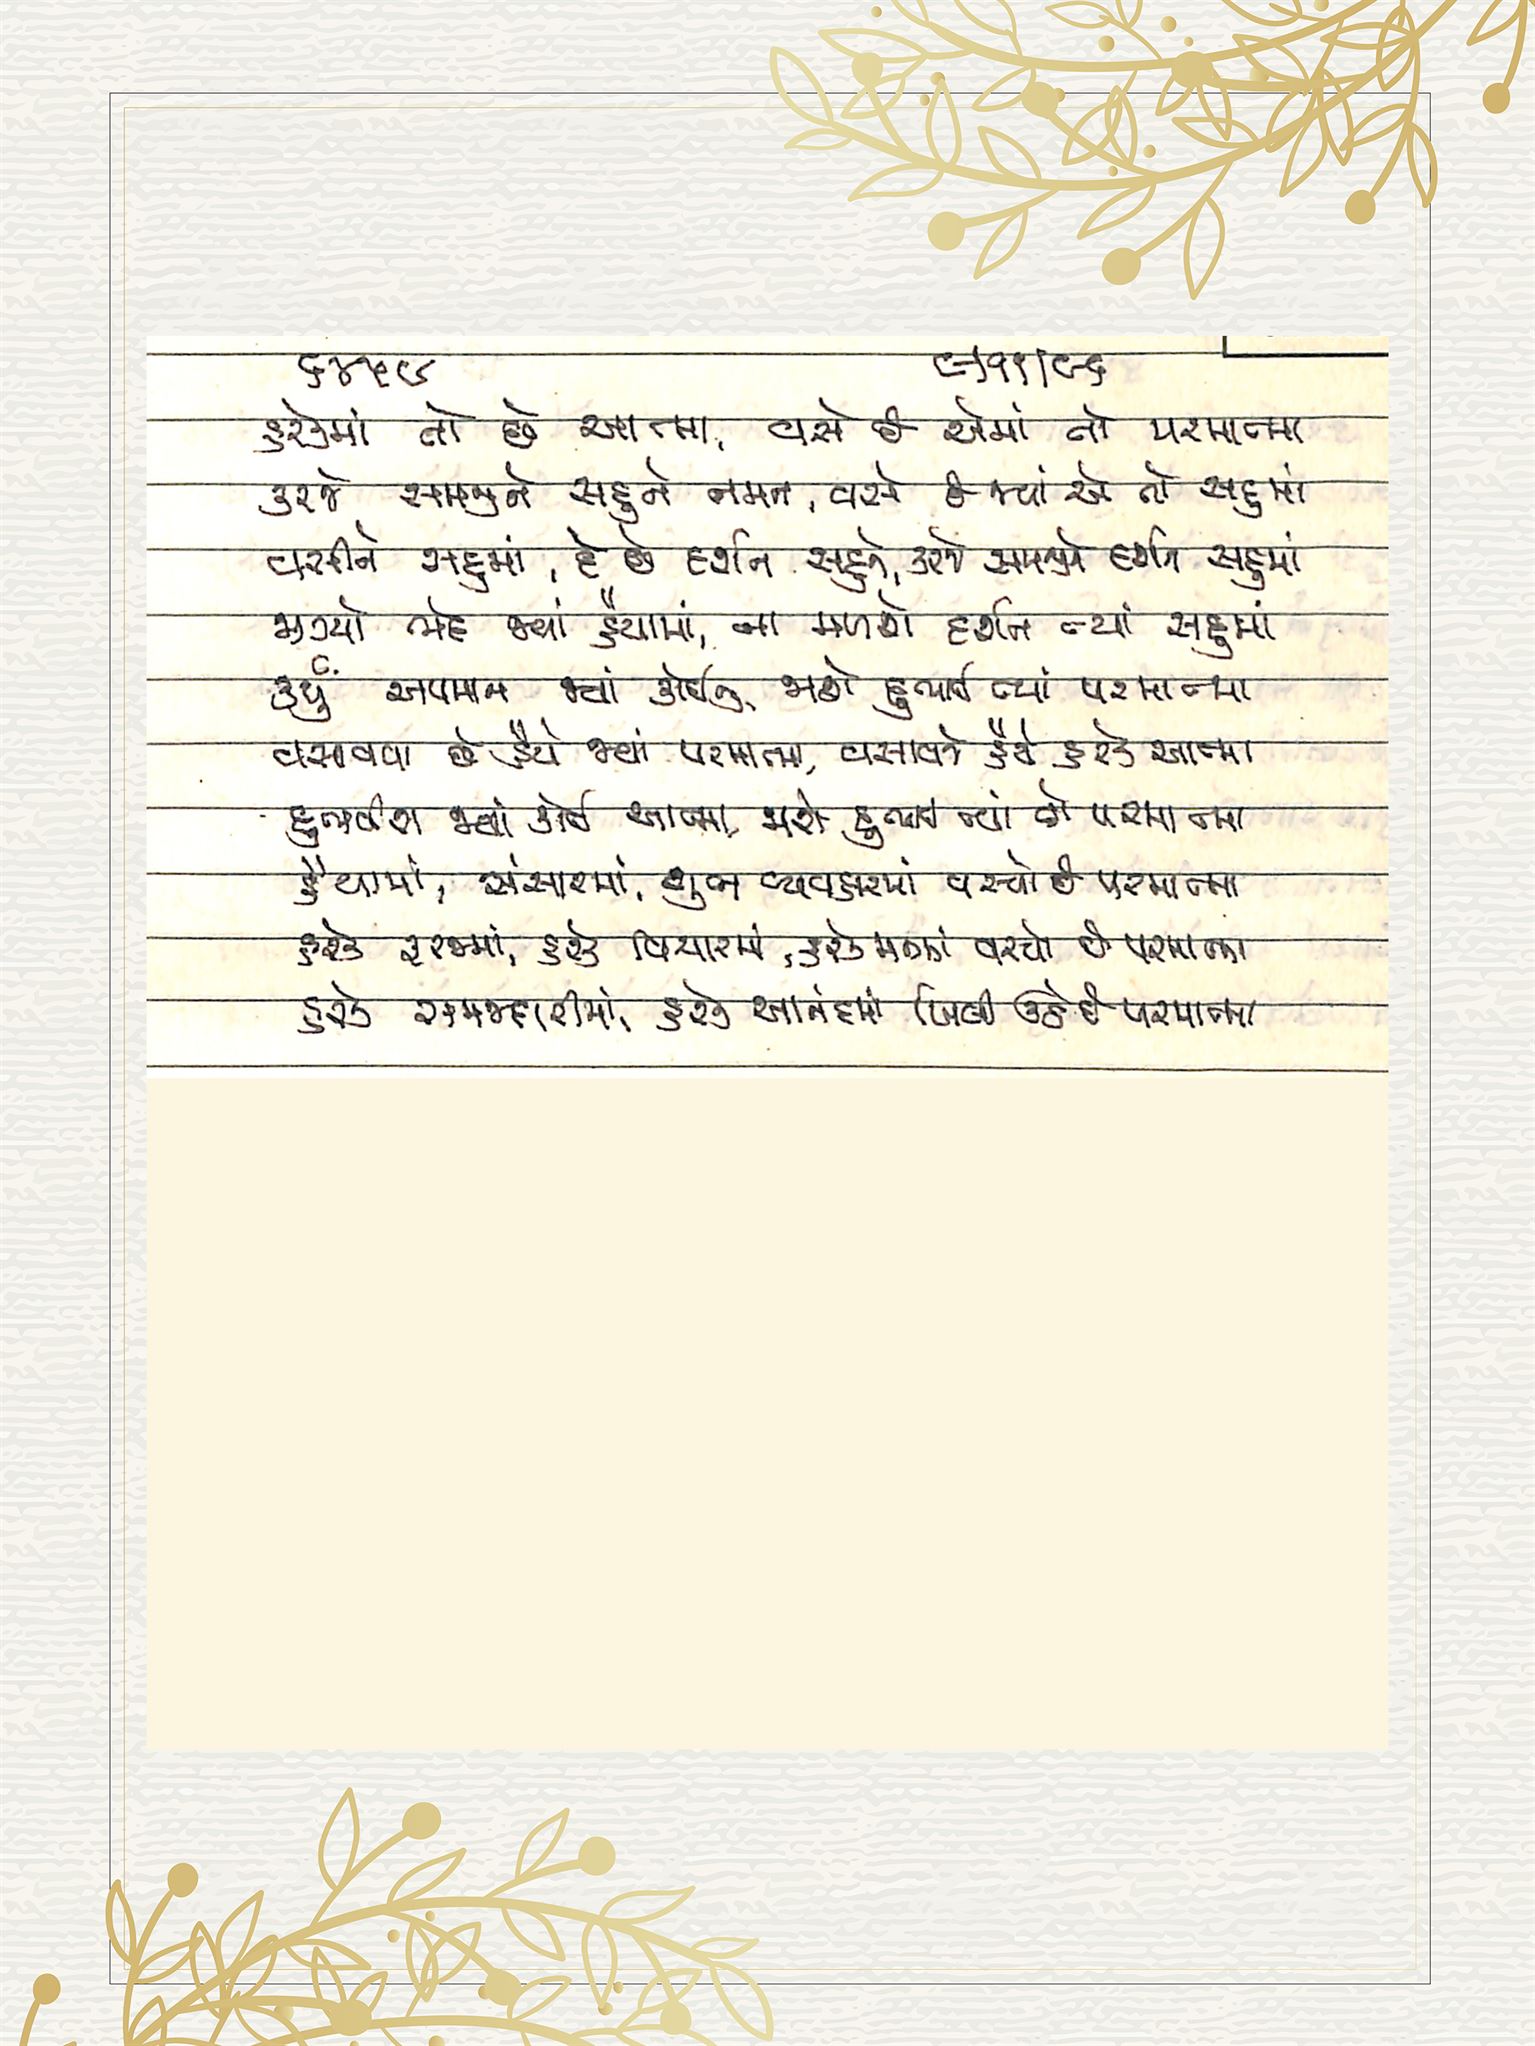 ૬૪૫૯ ૯|૧૧|૯૬
હરેકમાં તો છે આત્મા, વસે છે એમાં તો પરમાત્મા
કરજે સમજીને સહુને નમન, વસે છે જ્યાં એ તો સહુમાં
વસીને સહુમાં, દે છે દર્શન સહુને, કરજે સમજીને દર્શન સહુમાં
જાગ્યો ભેદ જ્યાં હૈયામાં, ના મળશે દર્શન ત્યાં સહુમાં
કર્યું અપમાન જ્યાં કોઈનું, જાશે દુભાઈ ત્યાં પરમાત્મા
વસાવવા છે હૈયે જ્યાં પરમાત્મા, વસાવજે હૈયે હરેક આત્મા
દુભાવીશ જ્યાં કોઈ આત્મા, જાશે દુભાઈ ત્યાં તો પરમાત્મા
હૈયામાં, સંસારમાં, શુભ વ્યવહારમાં વસ્યો છે પરમાત્મા
હરેક ફરજમાં, હરેક વિચારમાં, હરેક મનમાં વસ્યો છે પરમાત્મા
હરેક સમજદારીમાં, હરેક આનંદમાં ખિલી ઊઠે છે પરમાત્મા